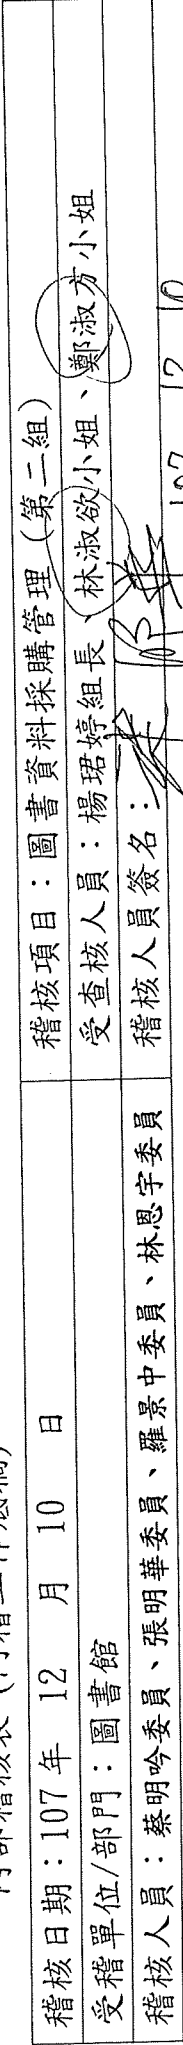 稽核日期：107年 12 月 10 日
稽核項目：圖書資料採購管理（第二組）
受稽單位/部門：圖書館
受查核人員：楊珺婷組長、林淑欲小姐、鄭淑方小姐
稽核人員：蔡明吟委員、張明華委員、羅景中委員、林恩宇委員
稽核人員簽名：
107 12 10